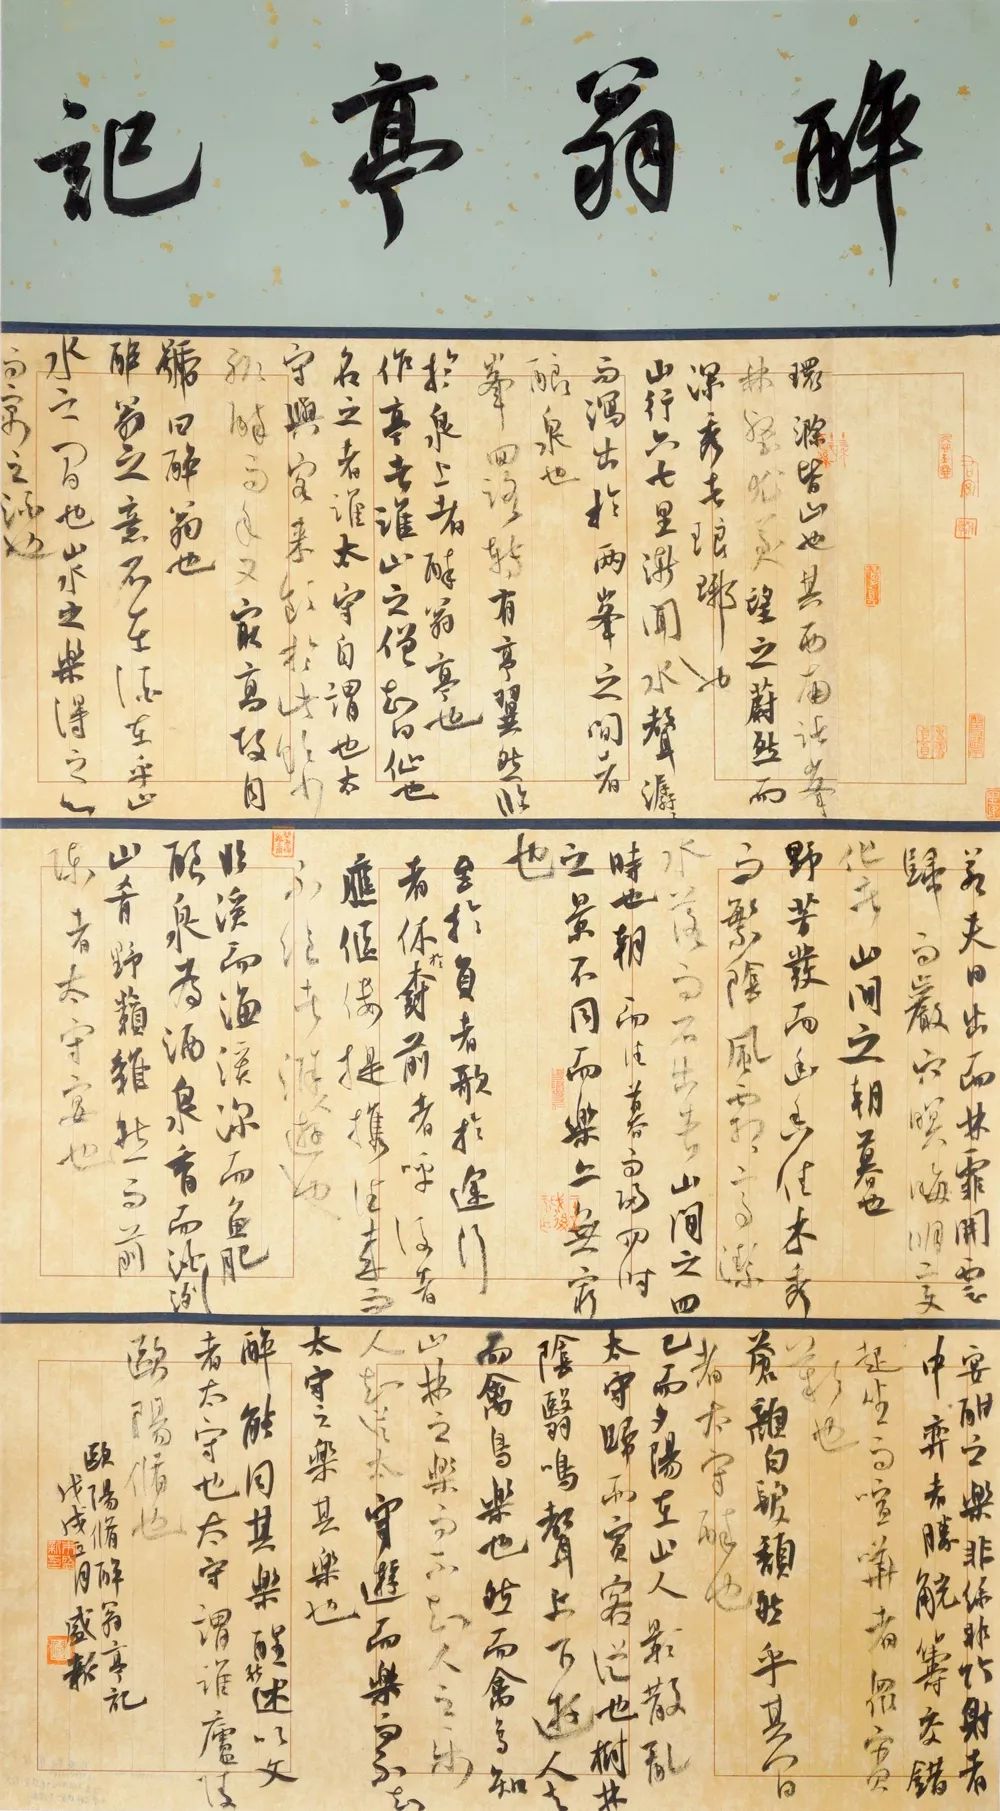 醉翁亭記
環滁皆山也其西南諸峯
林壑尤美望之蔚然而
深秀者琅琊也
山行六七里漸聞水聲潺
而瀉出於兩峯之間者
釀泉也
峯回路轉有亭翼然臨
於泉上者醉翁亭也
作亭者誰山之僧智仙也
名之者誰太守自謂也太
守與客來飲於此飲少
輒醉而年又最高故自
號曰醉翁也
醉翁之意不在酒在乎山
水之間也山水之樂得之心
而寓之酒也
若夫日出而林霏開雲
歸而巖穴暝晦明變
化者山間之朝暮也
野芳發而幽香佳木秀
而繁陰風霜高潔
水落而石出者山間之四
時也朝而往暮而歸四時
之景不同而樂亦無窮
也
至於負者歌於途行
者休於樹前者呼後者
應傴僂提攜往來而
不絕者滁人遊也
臨溪而漁溪深而魚肥
釀泉為酒泉香而酒洌
山肴野蔌雜然而前
陳者太守宴也
宴酣之樂非絲非竹射者
中弈者勝觥籌交錯
起坐而喧嘩者眾賓
歡也
蒼顏白髮頹然乎其間
者太守醉也
已而夕陽在山人影散亂
太守歸而賓客從也樹林
陰翳鳴聲上下遊人去
而禽鳥樂也然而禽鳥知
山林之樂而不知人之樂
人知從太守遊而樂而不知
太守之樂其樂也
醉能同其樂醒能述以文
者太守也太守謂誰廬陵
歐陽脩也
歐陽脩醉翁亭記
戊戌五月盛